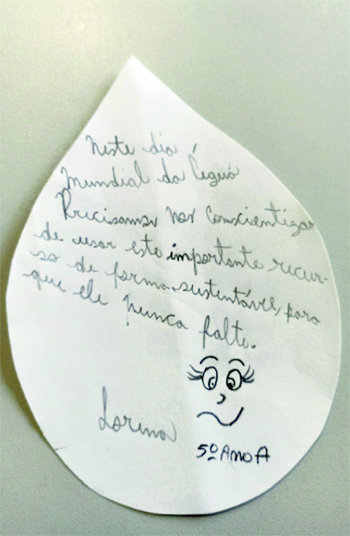 Neste dia
Mundial da Água
Precisamos nos conscientizar
de usar este importante recur-
so de forma sustentável, para
que ele nunca falte.
Lorena
5º ANO A